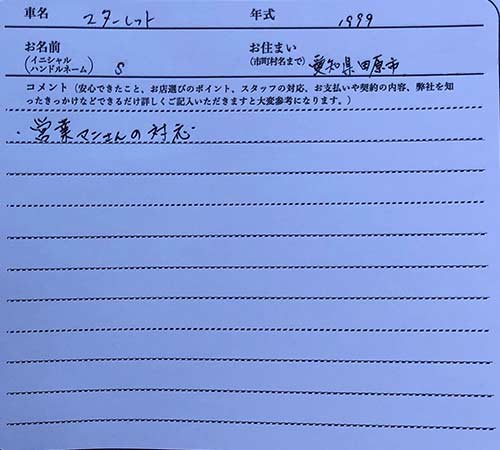 車名 スターレット 年式 1999
お名前 お住まい
(イニシャル ハンドルネーム) S (市町村名まで) 愛知県田原市
コメント（安心できたこと、お店選びのポイント、スタッフの対応、お支払いや契約の内容、弊社を知
ったきっかけなどできるだけ詳しくご記入いただきますと大変参考になります。）
・営業マンさんの対応